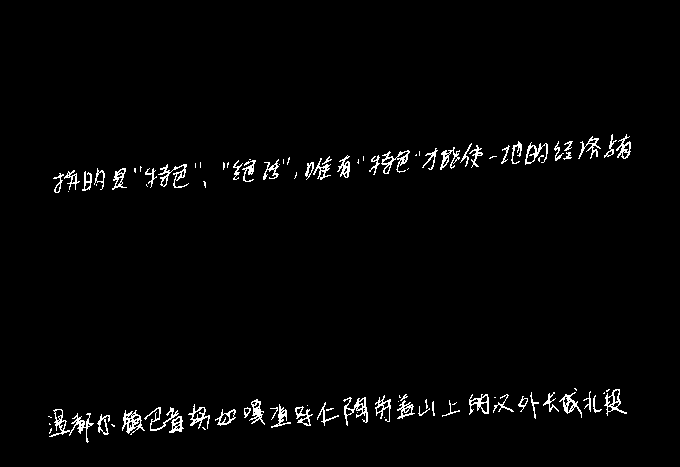 拼的是"特色"、"绝活",唯有"特色"才能使一地的经济与有
温都尔镇巴音努如嘎查跨仁陶劳盖山上的汉外长城北段